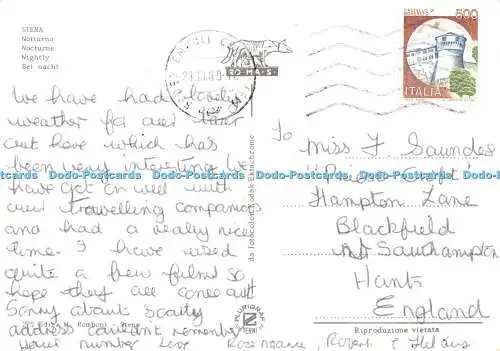 SIENA
Notturno
Nocturne
Nightly
Bei nacht
500
ITALIA
ROMA S.
We have had lovely
weather for our tour
out here which has
been very interesting We
have got on well with
our travelling companions
and had a really nice
time. I have used
quite a few films so
hope they all come out
Sorry about Scatty
address couldn't remember
your number Love Rosmarie, Robert & Helen
To Miss F Saunders
Hampton Lane
Blackfield
Nr Southampton
Hants
England
Dodo-Postcards Dodo-Postcards Dodo-Postcards Dodo-Postcards Dodo-Postcards
da fotocolor Kodak Ektachrome
PLURIGRAF
TERNI
Ediz. M. Romboni - Siena
Riproduzione vietata